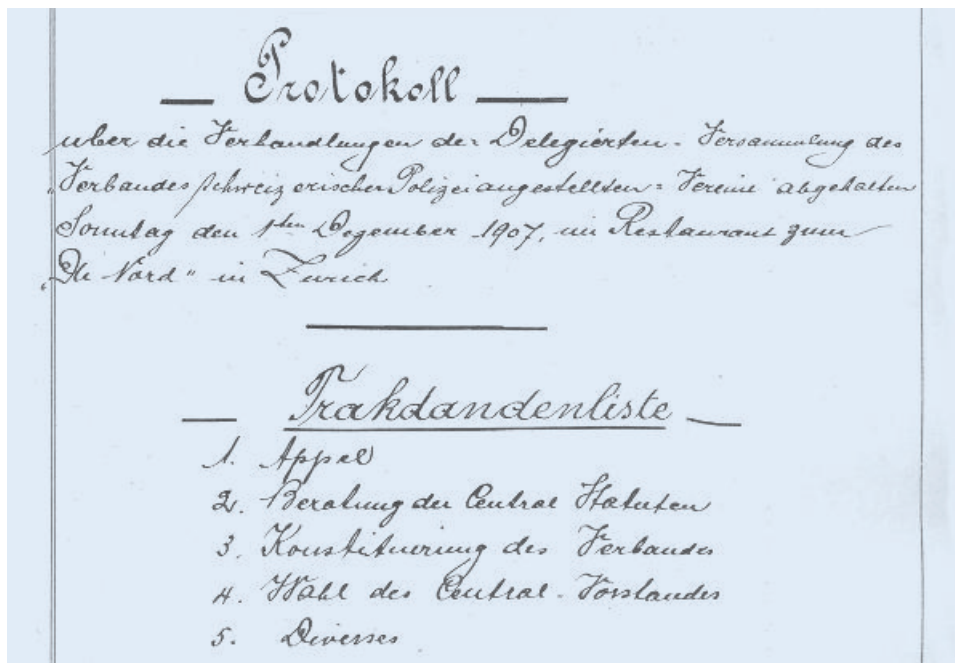 Protokoll
über die Verhandlungen der Delegierten-Versammlung des
"Verbandes schweizerischer Polizeiangestellten-Vereine" abgehalten
Sonntag den 1ten Dezember 1907, im Restaurant zum
"Du Nord" in Zürich
Trakdandenliste
1. Appel
2. Beratung der Central Statuten
3. Konstituierung des Verbandes
4. Wahl des Central-Vorstandes
5. Diverses